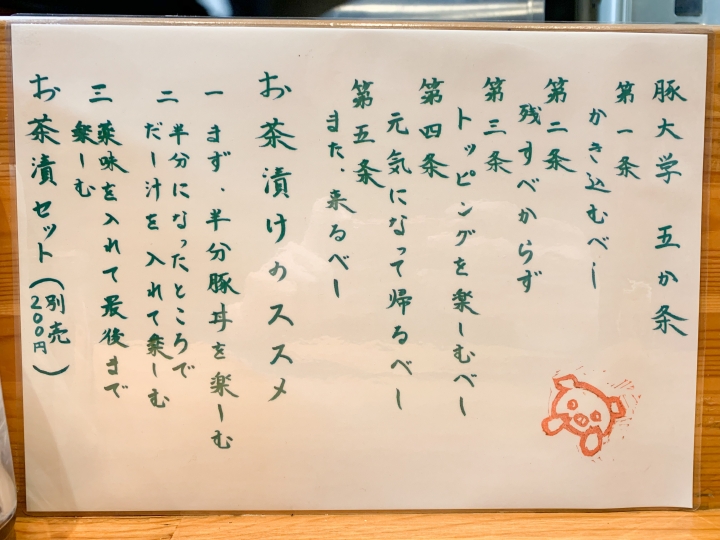 豚大学 五か条
第一条
かき込むべし
第二条
残すべからず
第三条
トッピングを楽しむべし
第四条
元気になって帰るべし
第五条
また、来るべし
お茶漬けのススメ
一 まず、半分豚丼を楽しむ
二 半分になったところで
だし汁を入れて楽しむ
三 薬味を入れて最後まで
楽しむ
お茶漬セット(別売200円)